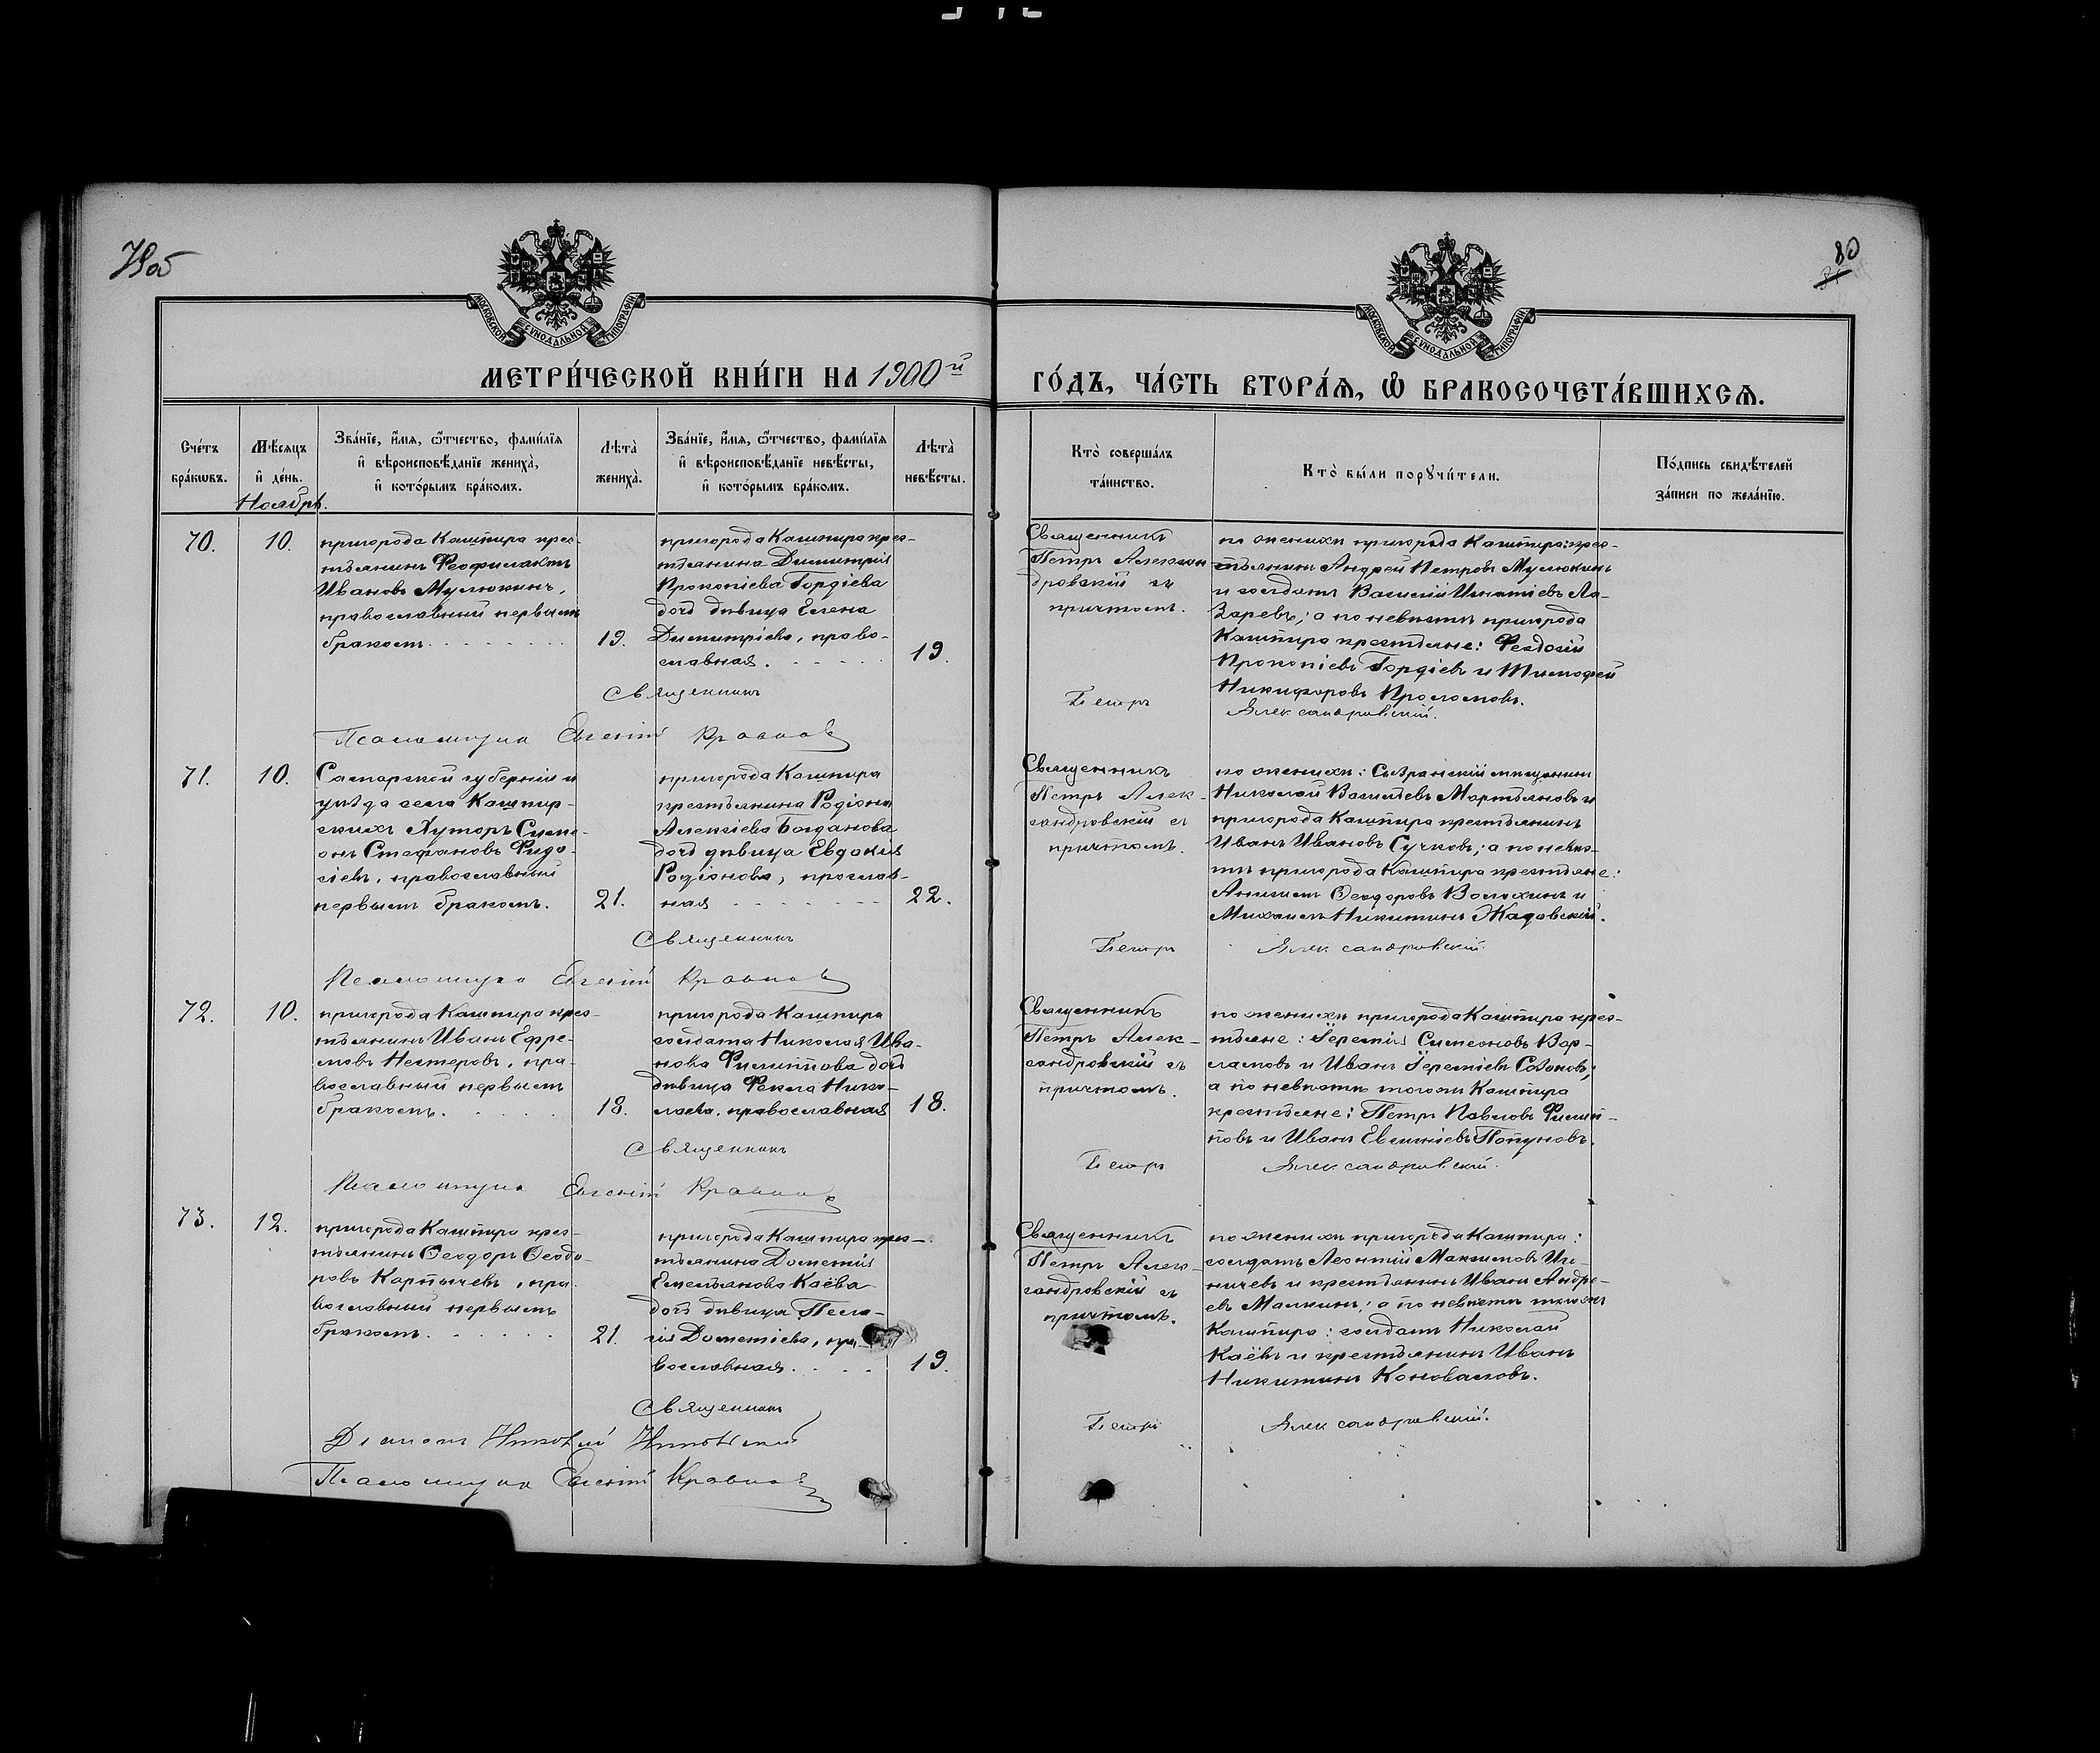 79об
80
МОСКОВСКОЙ СѴНОДАЛЬНОЙ ТИПОГРАФІИ
МОСКОВСКОЙ СѴНОДАЛЬНОЙ ТИПОГРАФІИ
МЕТРИ́ЧЕСКОЙ КНИ́ГИ НА 1900й
ГО́ДЪ, ЧА́СТЬ ВТОРА́Ѧ, Ѽ БРАКОСОЧЕТА́ВШИХСѦ.
Сче́тъ
бра́кωвъ.
Мѣ́сѧцъ
и҆ де́нь.
Зва́нїе, и҆́мѧ, ѻ҆́тчество, фами́лїѧ
и҆ вѣроисповѣ́данїе жениха̀,
и҆ кото́рымъ бра́комъ.
Лѣта̀
жениха̀.
Зва́нїе, и҆́мѧ, ѻ҆́тчество, фами́лїѧ
и҆ вѣроисповѣ́данїе невѣ́сты,
и҆ кото́рымъ бра́комъ.
Лѣта̀
невѣ́сты.
Кто̀ соверша́лъ
та́инство.
Кто̀ бы́ли порꙋчи́тели.
По́дпись свидѣ́телей
за́писи по жела́нїю.
Ноябрь.
70.
10.
пригорода Кашпира крес-
тьянинъ Феофилактъ
Ивановъ Мулюкинъ,
православный первымъ
бракомъ.
19.
пригорода Кашпира крес-
тьянина Димитрія
Прокопіева Гордіева
дочь дѣвица Елена
Димитріева, право-
славная.
19.
Священникъ
Петръ Алексан
дровскій съ
причтомъ.
по женихѣ пригорода Кашпира: крес-
тьянинъ Андрей Петровъ Мулюкинъ
и солдатъ Василій Игнатіевъ Ла-
заревъ; а по невѣстѣ пригорода
Кашпира крестьяне: Феодосій
Прокопіевъ Гордіевъ и Тимофей
Никифоровъ
Священникъ
Петръ
Александровскій.
Псаломщикъ Евгеній
71.
10.
Самарской губерніи и
уѣзда села Кашпир-
скихъ Хуторъ Симе-
онъ Стефановъ
православный
первымъ бракомъ.
21.
пригорода Кашпира
крестьянина Родіона
Алексіева Богданова
дочь дѣвица Евдокія
Родіонова, прослав-
ная
22.
Священникъ
Петръ Алек-
сандровскій съ
причтомъ.
по женихѣ: Сызранскій мещанинъ
Николай Васильевъ Мартьяновъ и
пригорода Кашпира крестьянинъ
Иванъ Ивановъ Сучковъ; а по невѣс-
тѣ пригорода Кашпира крестьяне:
Анисимъ Ѳеодоровъ Волохинъ и
Михаилъ Никитинъ Жадовскій.
Священникъ
Петръ
Александровскій.
Псаломщикъ Евгеній
72.
10.
пригорода Кашпира крес-
тьянинъ Иванъ Ефре-
мовъ Нестеровъ, пра-
вославный первымъ
бракомъ.
18.
пригорода Кашпира
солдата Николая Ива-
нова Филиппова дочь
дѣвица Фекла Нико-
лаева, православная
18.
Священникъ
Петръ Алек-
сандровскій съ
причтомъ.
по женихѣ пригорода Кашпира крес-
тьяне: Іеремія Симеоновъ Вар-
ламовъ и Иванъ Іереміевъ Созоновъ;
а по невѣстѣ тогожъ Кашпира
крестьяне: Петръ Павловъ Филип-
повъ и Иванъ
Священникъ
Петръ
Александровскій.
Псаломщикъ Евгеній
73.
12.
пригорода Кашпира крес-
тьянинъ Ѳеодоръ Ѳеодо-
ровъ Карпычевъ, пра-
вославный первымъ
бракомъ.
21.
пригорода Кашпира крес-
тьянина Дометія
Емельянова Каёва
дочь дѣвица Пела-
гія Дометіева, пра-
вославная.
19.
Священникъ
Петръ Алек-
сандровскій съ
причтомъ.
по женихѣ пригорода Кашпира:
солдатъ Леонтій Максимовъ Иль-
ичевъ и крестьянинъ Иванъ Андре-
евъ Малкинъ; а по невѣстѣ тогожъ
Кашпира: солдатъ Николай
Каёвъ и крестьянинъ Иванъ
Никитинъ Коноваловъ.
Священникъ
Петръ
Александровскій.
Діаконъ
Псаломщикъ Евгеній